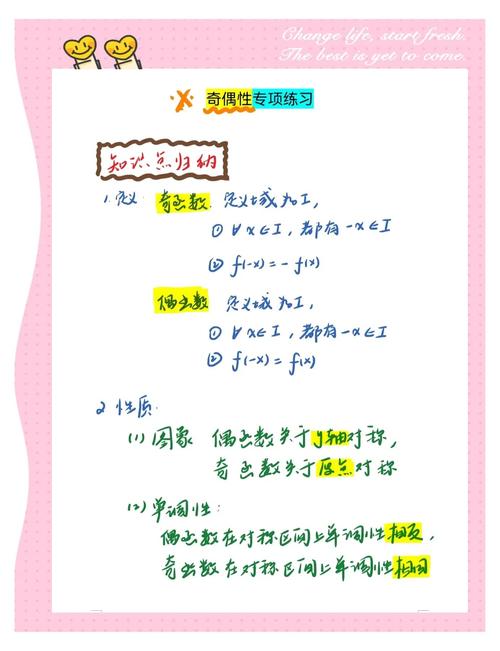 Change life, start fresh.
The best is yet to come.
奇偶性专项练习
知识点归纳
1. 定义: 奇函数. 定义域为I,
① ∀x∈I, 都有-x∈I
② f(-x)=-f(x)
偶函数 定义域为I,
① ∀x∈I, 都有-x∈I
② f(-x)=f(x)
2. 性质:
(1) 图象 偶函数关于y轴对称,
奇函数关于原点对称
(2) 单调性:
偶函数在对称区间上单调性相反,
奇函数在对称区间上单调性相同